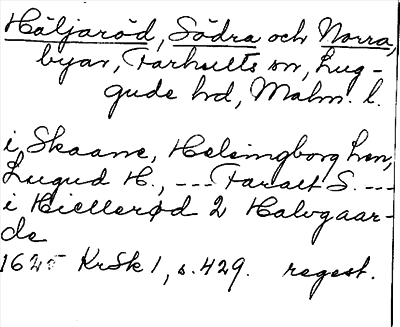 Häljaröd, Södra och Norra,
byar, Farhults sn, Lug-
gude hd, Malm. l.
i Skaane, Helsingborg Len,
Lugud H., --- Faralt S. ---
i Hiellerød 2 Halvgaar-
de
1625 KrSk 1, s. 429. regest.